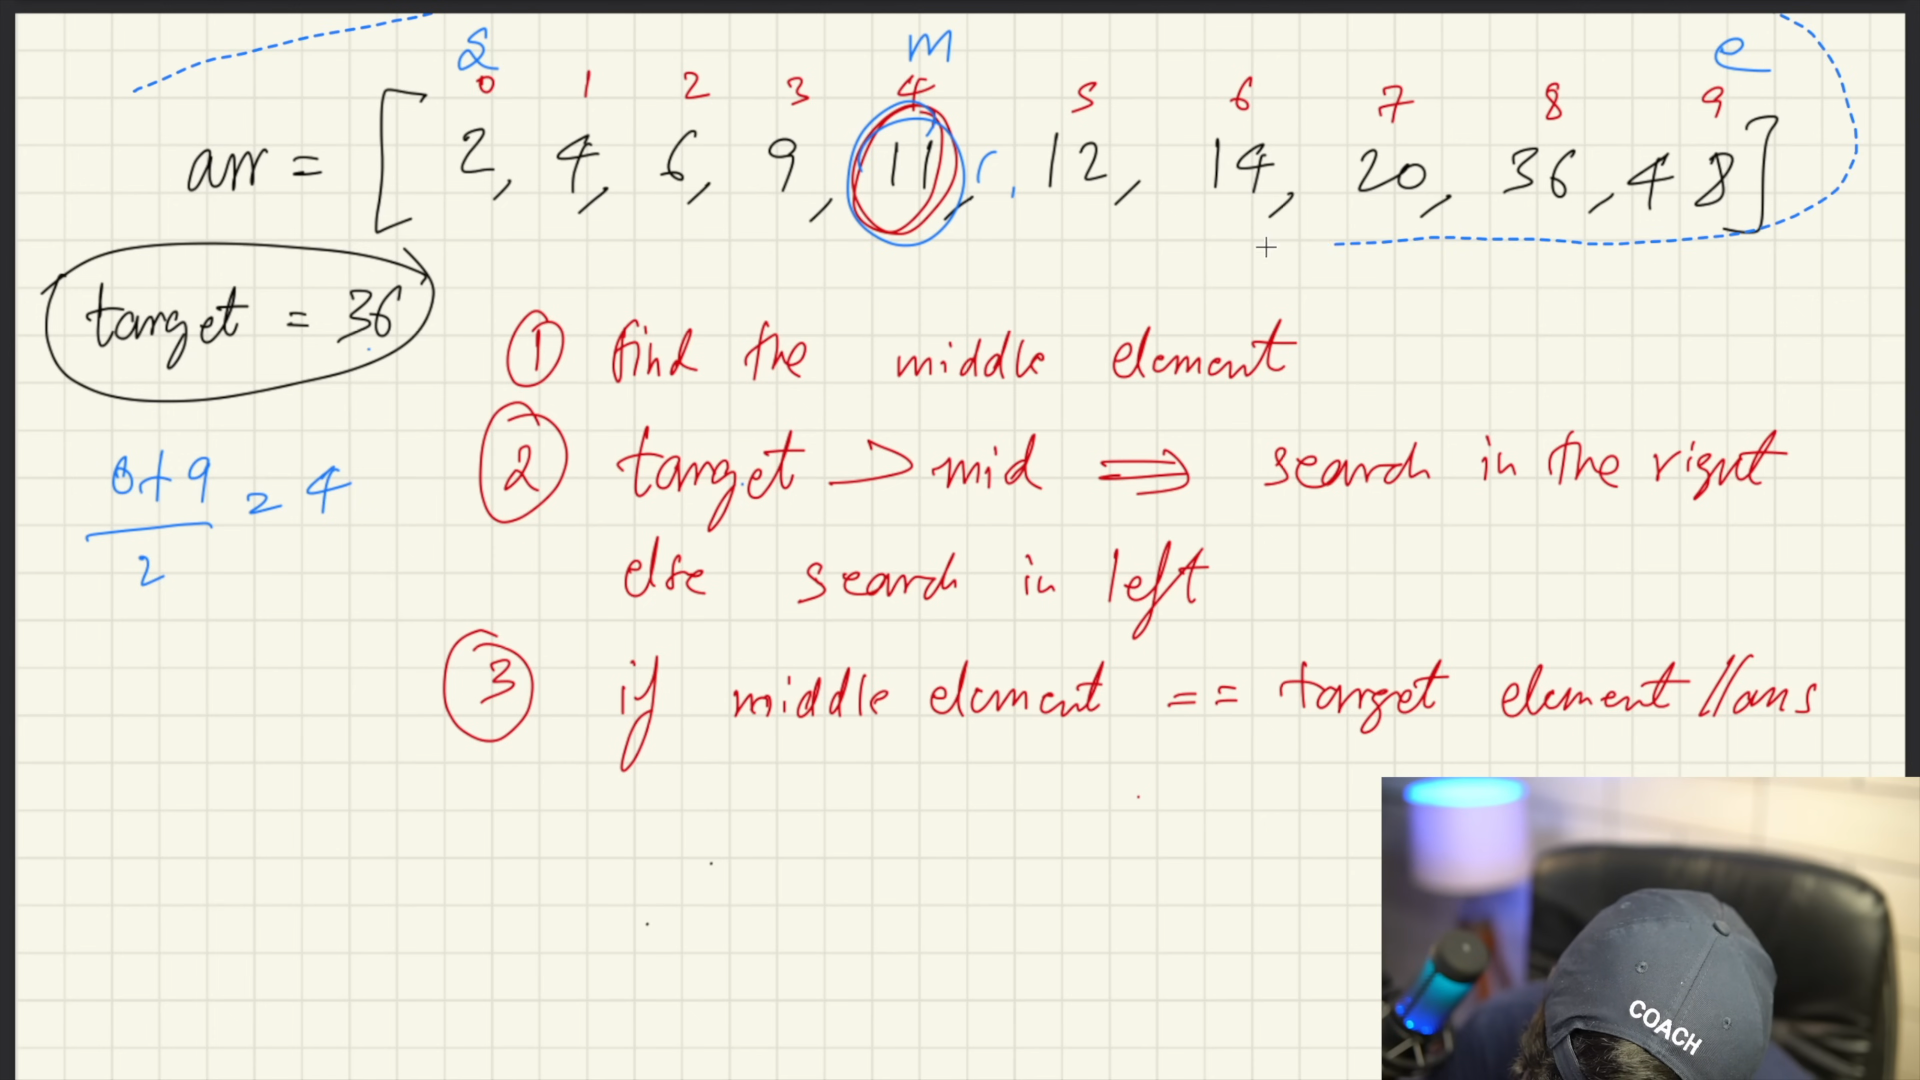 S m e
0 1 2 3 4 5 6 7 8 9
arr = [2, 4, 6, 9, 11, 12, 14, 20, 36, 48]
target = 36
① find the middle element
② target > mid ⇒ search in the right
else search in left
0+9 = 4
2
③ if middle element == target element //ans
COACH